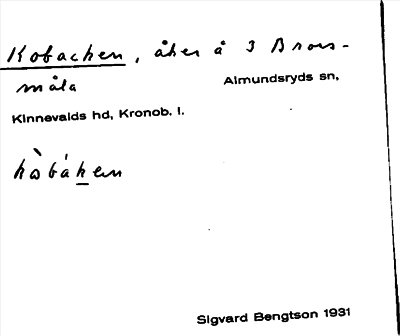 Kobacken, åker å 3 Brors-
måla
Almundsryds sn,
Kinnevalds hd, Kronob. l.
Sigvard Bengtson 1931